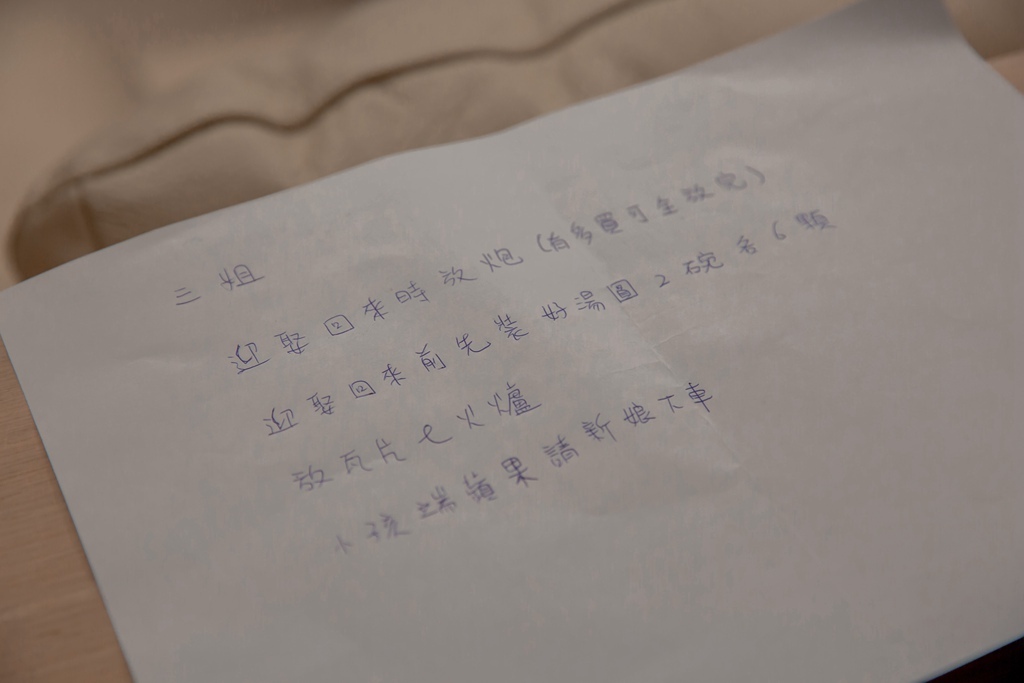 三姐
迎娶回來時放炮(有多買可全放完)
迎娶回來前先裝好湯圓2碗各6顆
放瓦片七火爐
小孩端蘋果請新娘下車